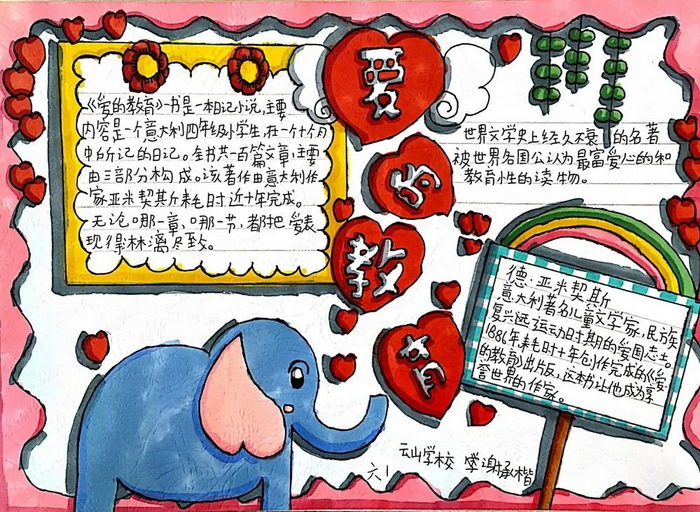 爱的教育
《爱的教育》一书是一本日记小说,主要
内容是一个意大利四年级小学生,在一个十个月
中所记的日记。全书共一百篇文章,主要
由三部分构成。该著作由意大利作
家亚米契斯耗时近十年完成。
无论哪一章、哪一节,都把爱表
现得淋漓尽致。
世界文学史上经久不衰的名著
被世界各国公认为最富爱心的和
教育性的读物。
德·亚米契斯
意大利著名儿童文学家,民族
复兴运动时期的爱国志士。
1886年耗时十年创作完成的《爱
的教育》出版,这本书让他成为享
誉世界的作家。
云山学校
六1
谢
楷